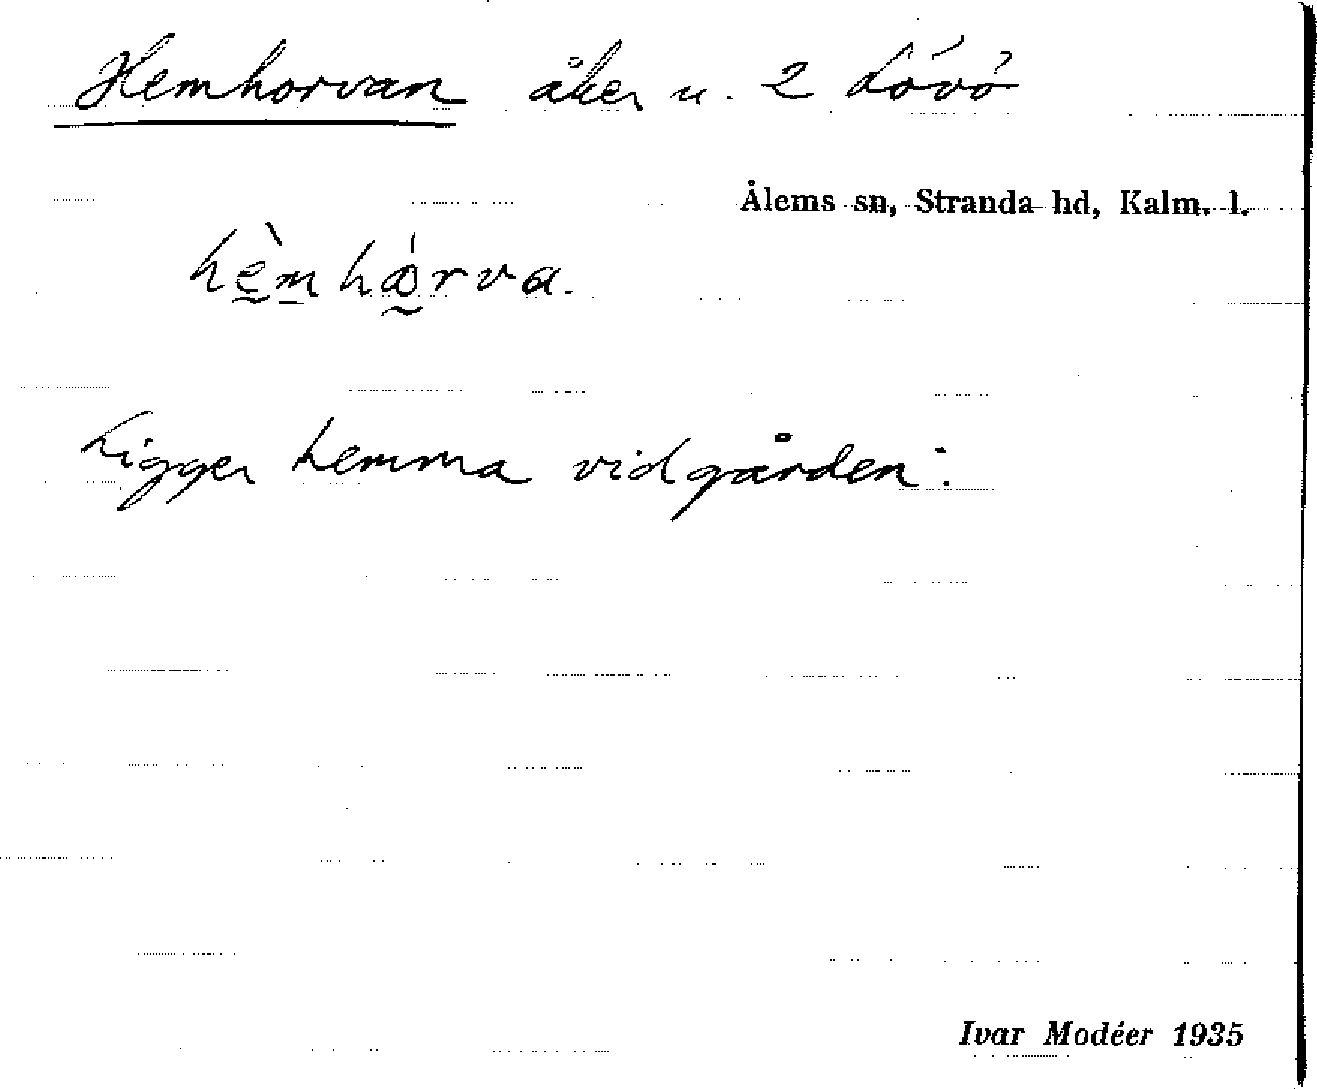 Hemhorvan åker u. 2 Lövö
Ålems sn, Stranda hd, Kalm. l.
hèmhórva.
Ligger hemma vid gården.
Ivar Modéer 1935